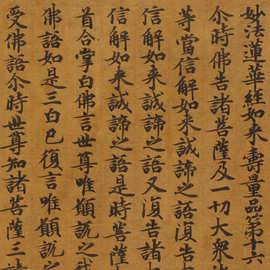 妙法蓮華經如來壽量品第十六
尒時佛告諸菩薩及一切大衆
等當信解如來誠諦之語復告
信解如來誠諦之語又復告諸
信解如來誠諦之語是時菩薩
首合掌白佛言世尊唯願說之
佛語如是三白已復言唯願說之
受佛語尒時世尊知諸菩薩三